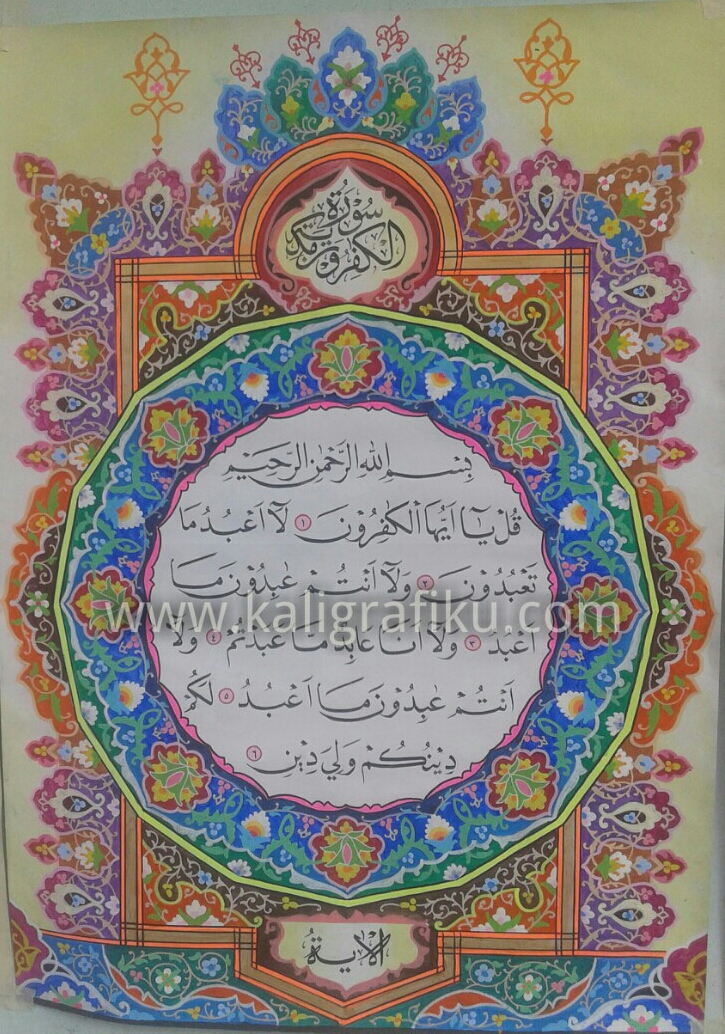 سُوْرَةُ
الكٰفرون مكية
بِسْمِ اللهِ الرَّحْمٰنِ الرَّحِيْمِ
قُلْ يَآ اَيُّهَا الْكٰفِرُوْنَ ١ لَآ اَعْبُدُ مَا
تَعْبُدُوْنَ ٢ وَلَآ اَنْتُمْ عٰبِدُوْنَ مَآ
اَعْبُدُ ٣ وَلَآ اَنَا۠ عَابِدٌ مَّا عَبَدْتُّمْ ٤ وَلَآ
اَنْتُمْ عٰبِدُوْنَ مَآ اَعْبُدُ ٥ لَكُمْ
دِيْنُكُمْ وَلِيَ دِيْنِ ٦
www.kaligrafiku.com
الاية